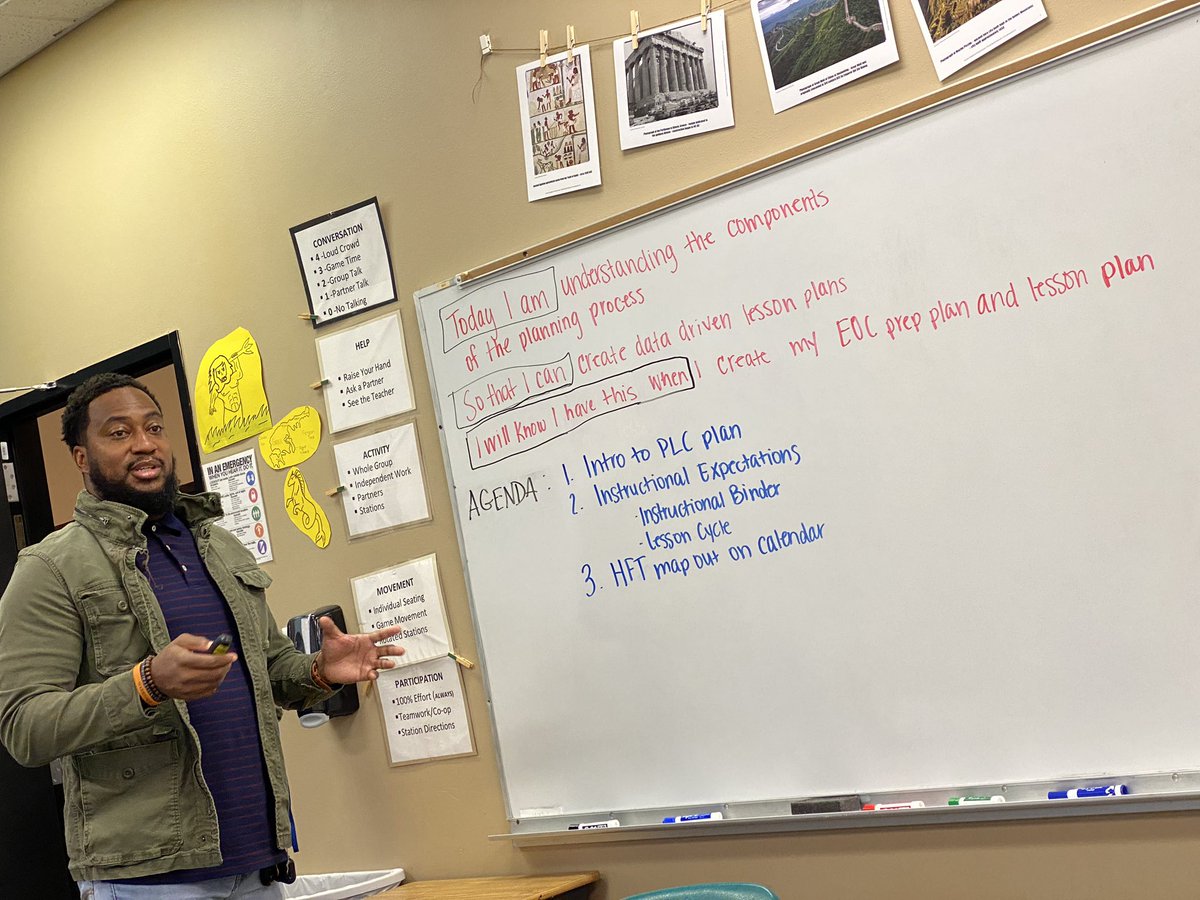 CONVERSATION
▪ 4 -Loud Crowd
▪ 3 -Game Time
▪ 2 -Group Talk
▪ 1 -Partner Talk
▪ 0 -No Talking
HELP
▪ Raise Your Hand
▪ Ask a Partner
▪ See the Teacher
ACTIVITY
▪ Whole Group
▪ Independent Work
▪ Partners
▪ Stations
IN AN EMERGENCY
WHEN YOU HEAR IT. DO IT.
MOVEMENT
▪ Individual Seating
▪ Game Movement
Stations
PARTICIPATION
▪ 100% Effort (ALWAYS)
▪ Teamwork/Co-op
▪ Station Directions
Today I am understanding the components
of the planning process
So that I can create data driven lesson plans
I will know I have this when I create my EOC prep plan and lesson plan
AGENDA: 1. Intro to PLC plan
2. Instructional Expectations
- Instructional Binder
- Lesson Cycle
3. HFT map out on calendar